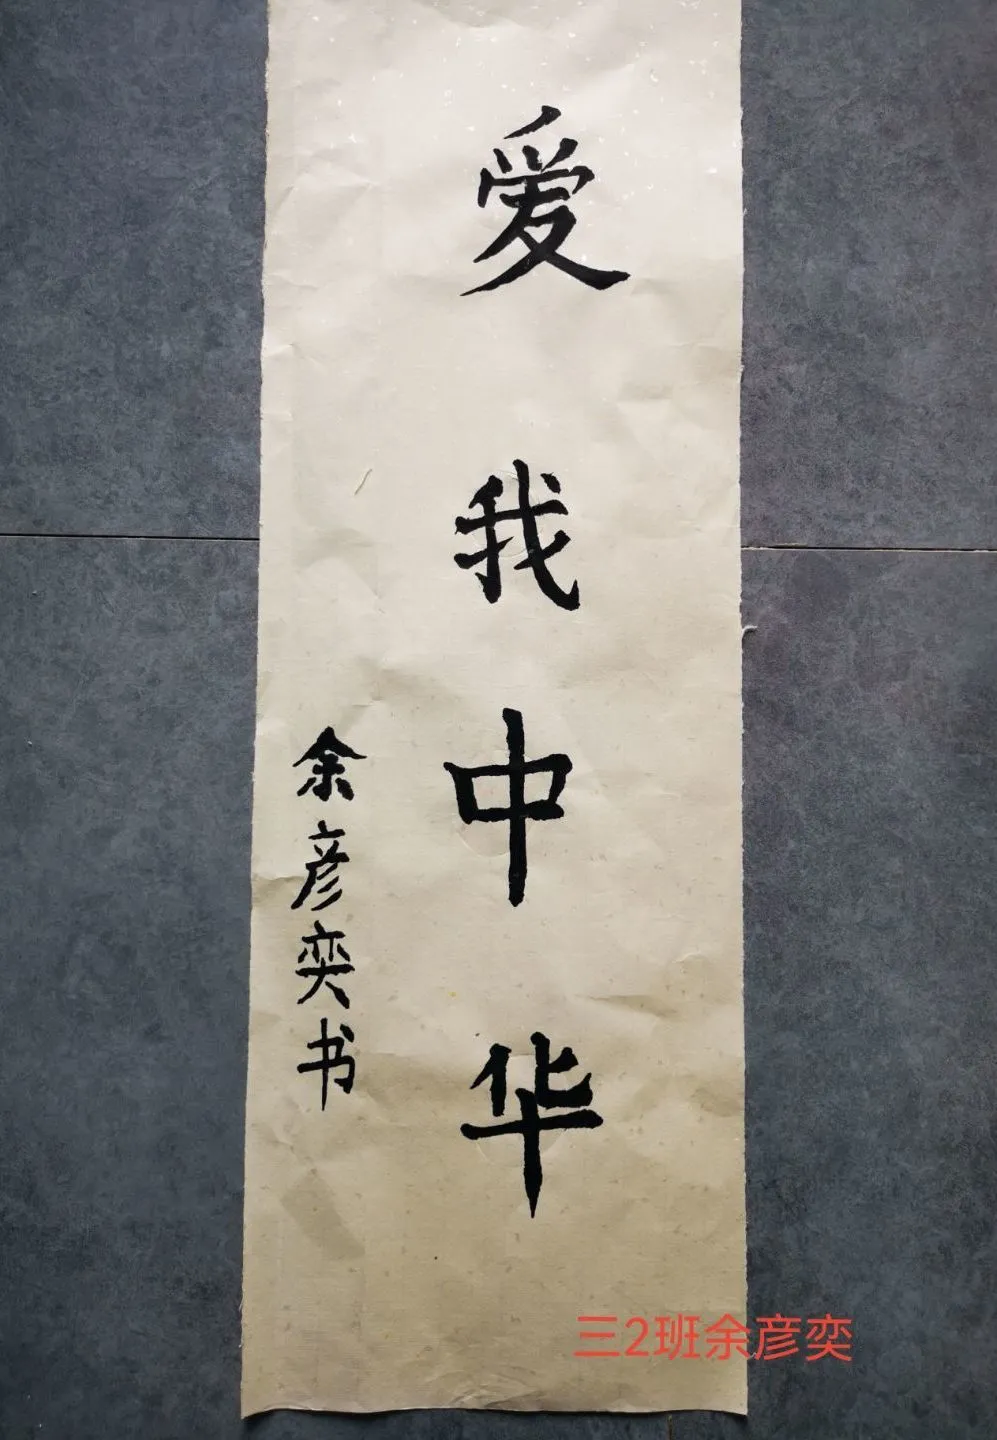 爱我中华
余彦奕书
三2班余彦奕